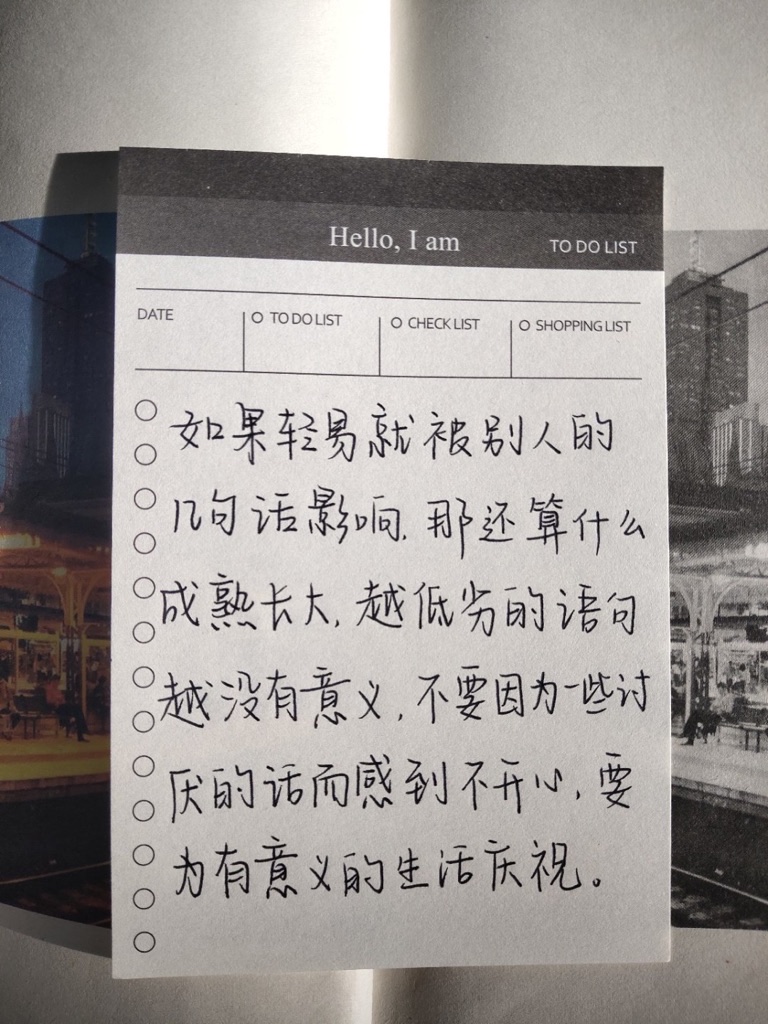 Hello, I am
TO DO LIST
DATE
TO DO LIST
CHECK LIST
SHOPPING LIST
如果轻易就被别人的
几句话影响,那还算什么
成熟长大,越低劣的语句
越没有意义,不要因为一些讨
厌的话而感到不开心,要
为有意义的生活庆祝。